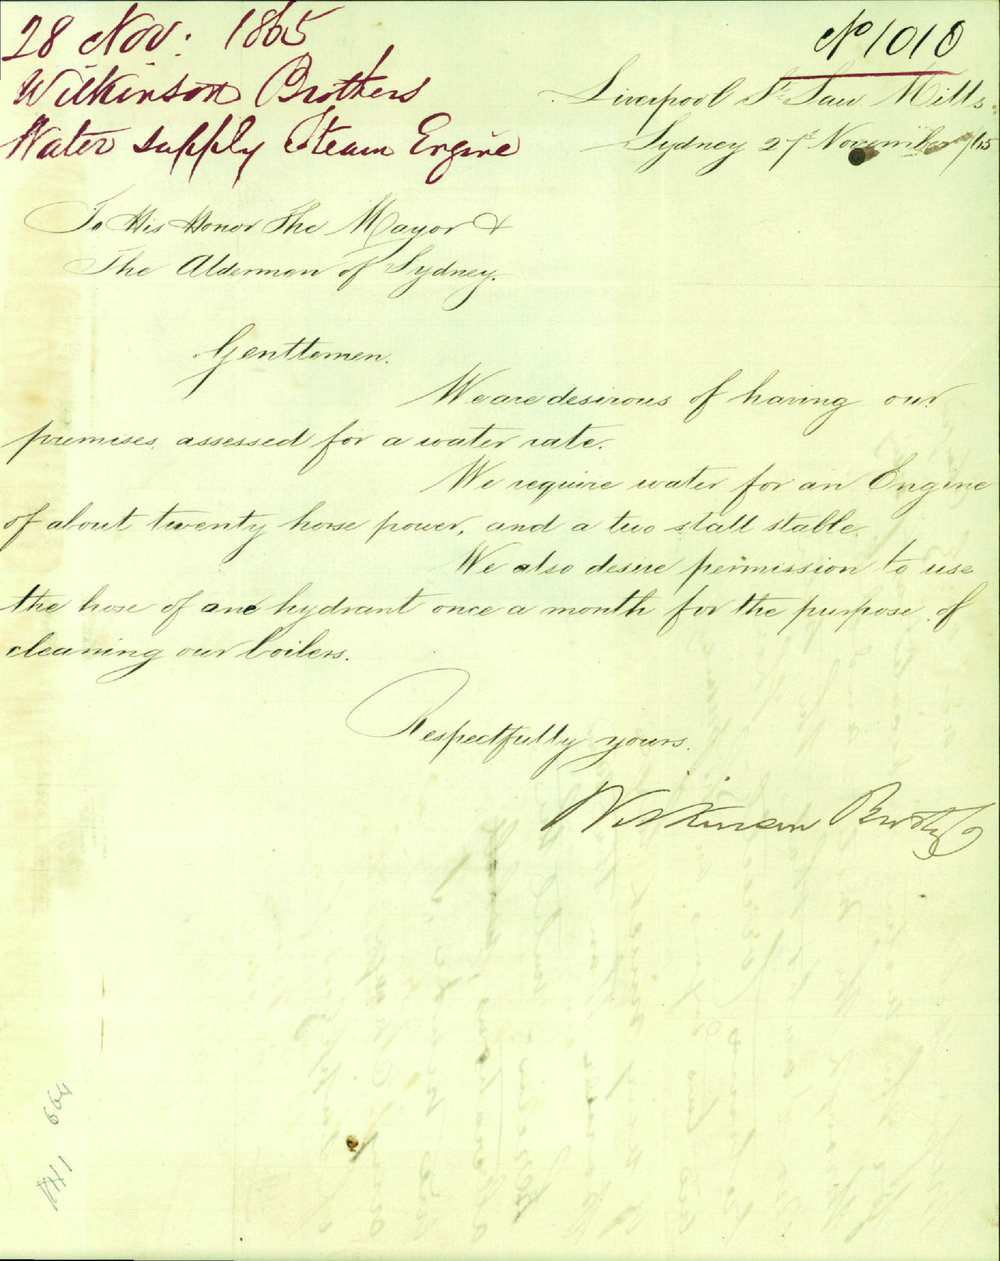 28 Nov: 1865
Wilkinson Brothers
Water supply Steam Engine
No 1010
Liverpool St Saw Mills
Sydney 27th November /65
To His Honor The Mayor &
The Aldermen of Sydney.
Gentlemen.
We are desirous of having our
premises, assessed for a water rate.
We require water for an Engine
of about twenty horse power, and a two stall stable.
We also desire permission to use
the hose of one hydrant once a month for the purpose of
cleaning our boilers.
Respectfully yours.
Wilkinson Brothers
664